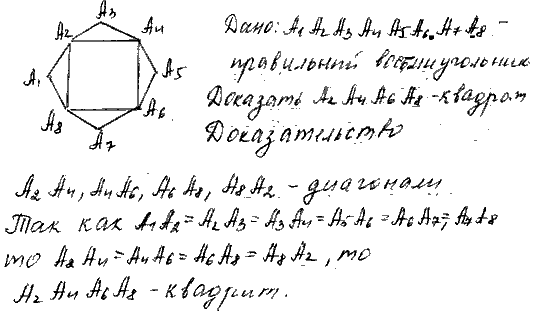 A3
A2 A4
A1 A5
A8 A6
A7
Дано: A1 A2 A3 A4 A5 A6 A7 A8 –
правильний восьмиугольник
Доказать A2 A4 A6 A8 -квадрат
Доказательство
A2 A4, A4 A6, A6 A8, A8 A2 – диагонали
Так как A1 A2 = A2 A3 = A3 A4 = A5 A6 = A6 A7 = A7 A8
то A2 A4 = A4 A6 = A6 A8 = A8 A2, то
A2 A4 A6 A8 – квадрит.